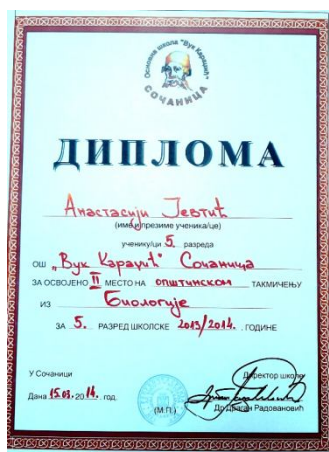 Основна школа "Вук Караџић"
СОЧАНИЦА
ДИПЛОМА
Анастасији Јевтић
(име и презиме ученика/це)
ученику/ци 5. разреда
ОШ „Вук Караџић“ Сочаница
ЗА ОСВОЈЕНО II МЕСТО НА општинском ТАКМИЧЕЊУ
ИЗ Биологије
ЗА 5. РАЗРЕД ШКОЛСКЕ 2013/2014. ГОДИНЕ
У Сочаници
Директор школе
Дана 15.03.2014. год.
(М.П.)
Др Драган Радовановић